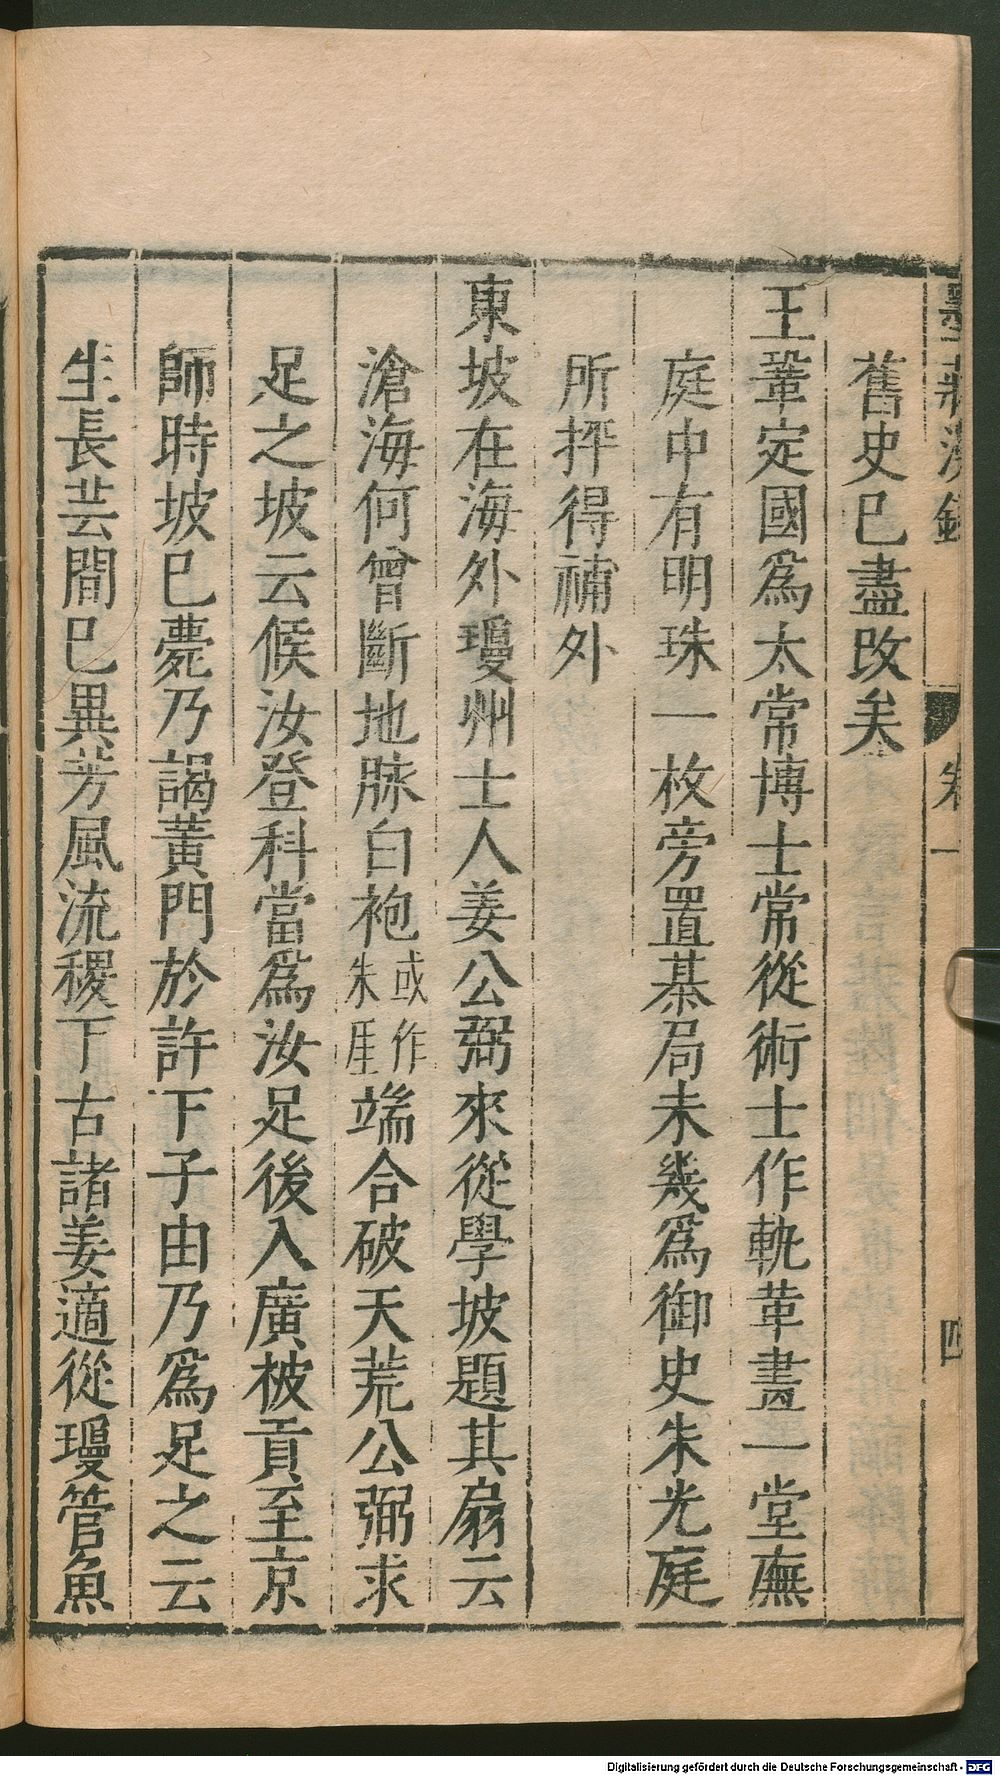 舊史已盡改矣
王鞏定國爲太常博士常從術士作軌革畫一堂廡
庭中有明珠一枚旁置棊局未幾爲御史朱光庭
所抨得補外
東坡在海外瓊州士人姜公弼來從學坡題其扇云
滄海何曾斷地脉白袍或作朱厓端合破天荒公弼求
足之坡云候汝登科當爲汝足後入廣被貢至京
師時坡已薨乃謁黃門於許下子由乃爲足之云
生長芸間已異芳風流稷下古諸姜適從瓊管魚
卷一
四
Digitalisierung gefördert durch die Deutsche Forschungsgemeinschaft - DFG